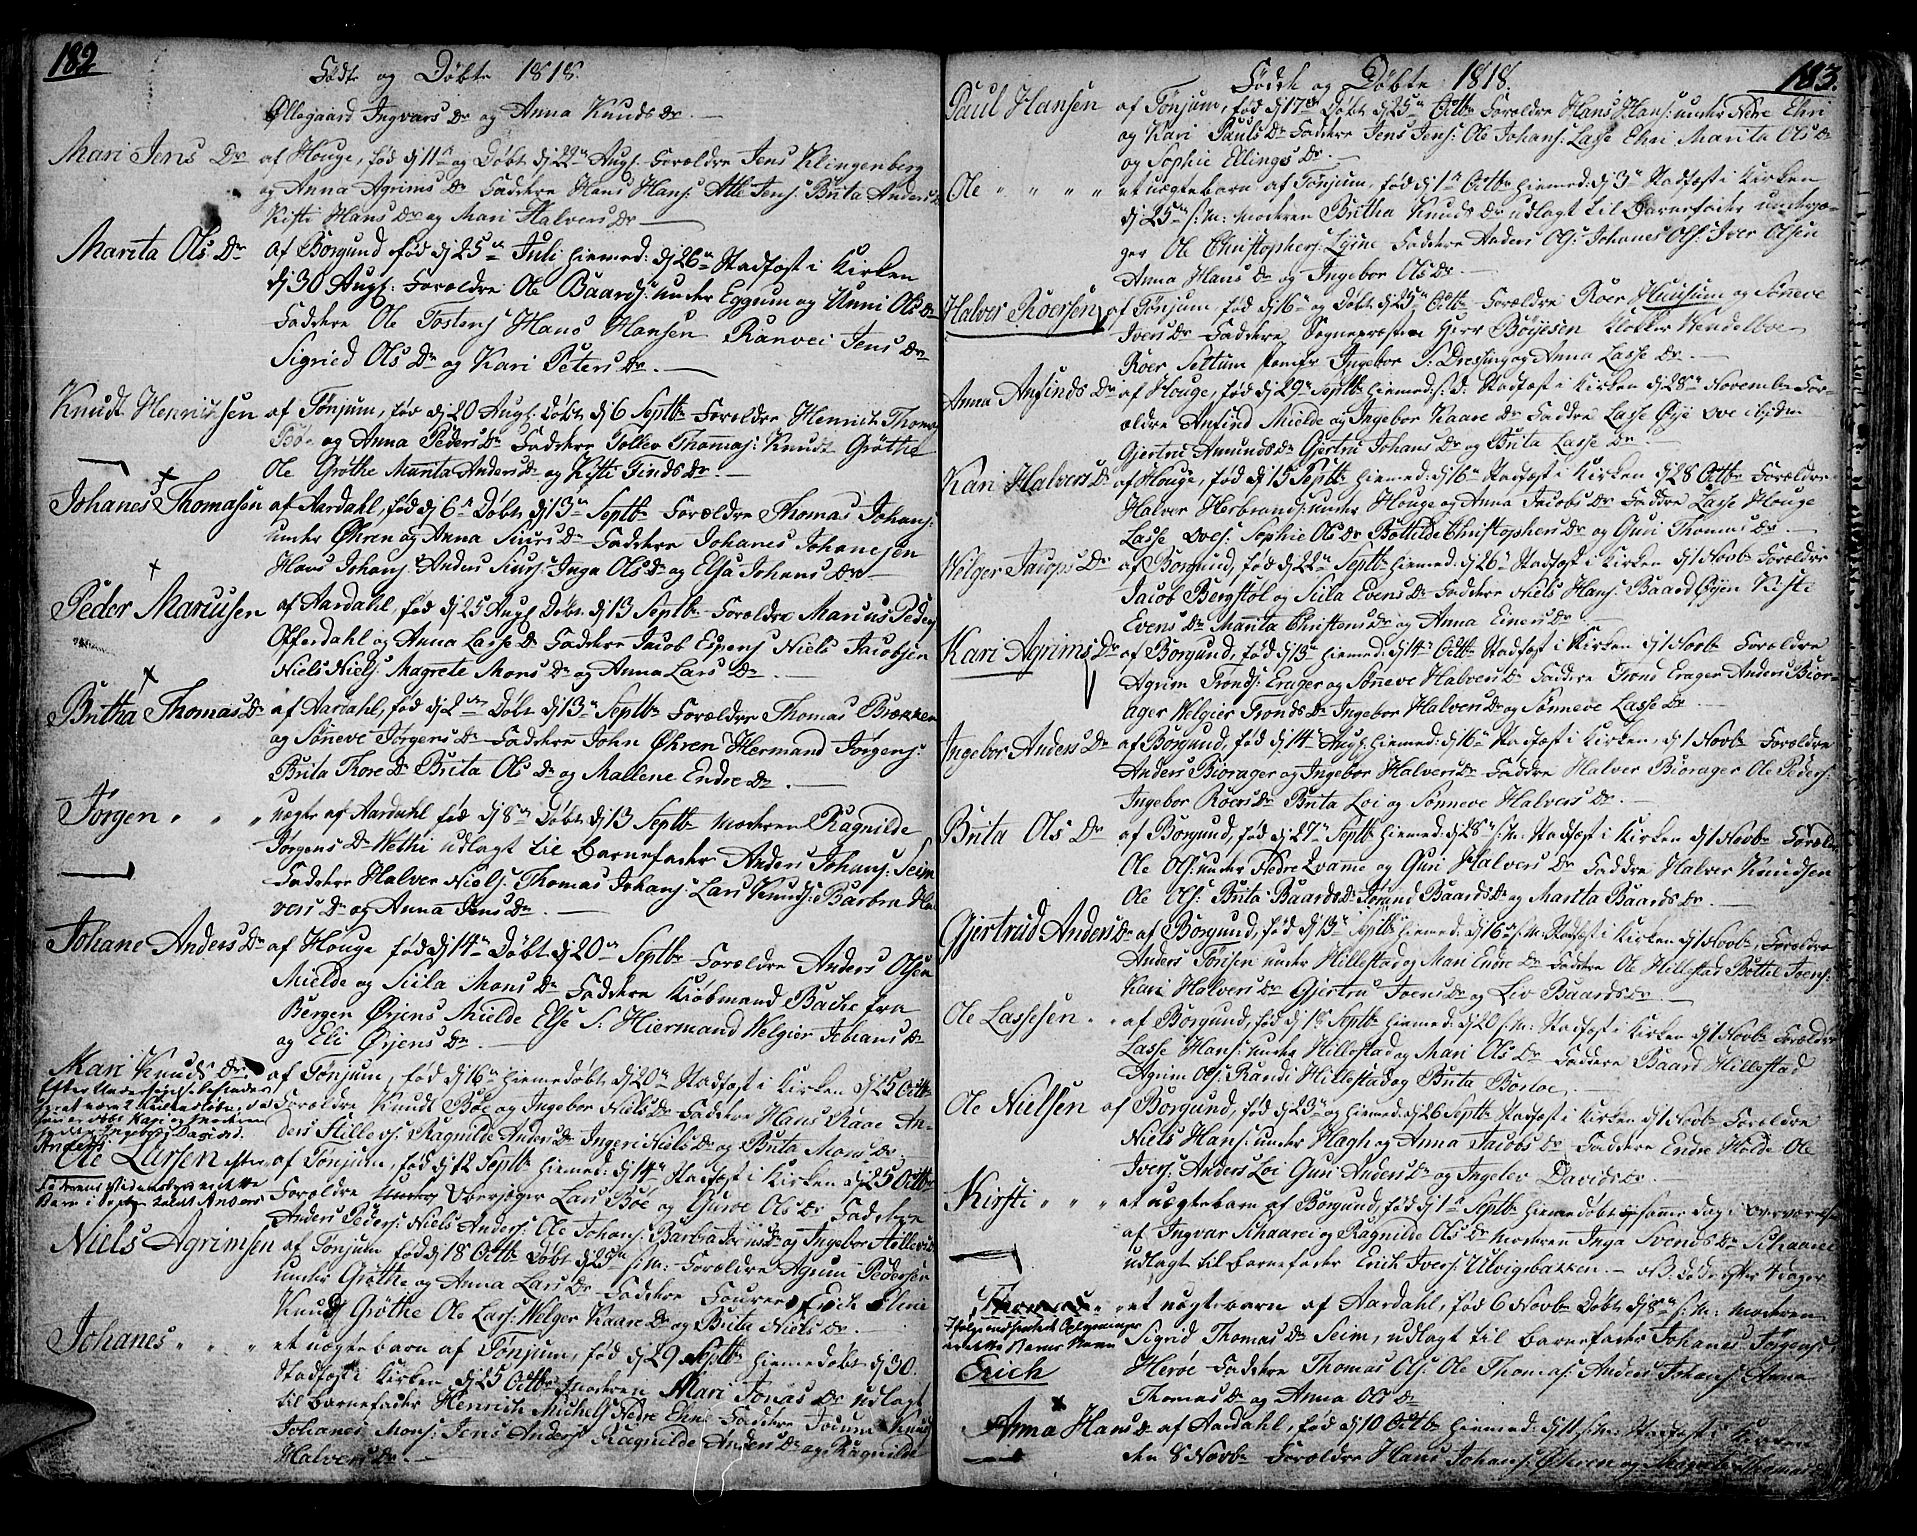 182
Fødte og Døbte 1818.
Øllegaard Ingvars Dr og Anna Knuds Dr. —
Mari Jens Dr af Houge, fød dj 11te og Døbt dj 22n Augs. Forældre Jens Klingenberg
og Anna Agrims Dr Faddere Hans Hans: Atle Jens: Brita Anders Dr
Kisti Hans Dr og Mari Halvers Dr —
Marita Ols Dr af Borgund fød dj 25n Juli hiemed: dj 26n Stadfæst i Kirken
dj 30 Augs: Forældre Ole Baards: under Eggum og Unni Ols Dr
Faddere Ole Tostens: Hans Hansen Ranvei Jens Dr
Sigried Ols Dr og Kari Peters Dr. —
Knudt Henrichsen af Tønjum, fød dj 20 Augs: Døbt dj 6 Septbr Forældre Henrich Thomas:
Bøe og Anna Peders Dr Faddere Tollev Thomas: Knudt Grøthe
Ole Grøthe Marita Anders Dr og Kisti Finds Dr
Johanes Thomasen af Aardahl, fød dj 6n Døbt dj 13n Septbr Forældre Thomas Johans:
under Øhren og Anna Siurs Dr Faddere Johanes Johanesen
Hans Johans: Anders Siurs: Inga Ols Dr og Elsa Johans Dr —
Peder Marcusen af Aardahl, fød dj 25 Augs: Døbt dj 13 Septbr Forældre Marcus Peders:
Offerdahl og Anna Lasse Dr Faddere Jacob Espens: Niels Jacobsen
Niels Niels: Magrete Mons Dr og Anna Lars Dr —
Britha Thomas Dr af Aardahl, fød dj 2den Døbt dj 13n Septbr Forældre Thomas Brækken
og Søneve Jørgens Dr Faddere John Øhren Hermand Jørgens:
Brita Thore Dr Brita Ols Dr og Mallene Endre Dr —
Jørgen " " " uægte af Aardahl fød dj 8n Døbt dj 13 Septbr Moderen Ragnilde
Jørgens Dr Nethi udlagt til Barnefader Anders Johans: Seim
Faddere Halver Niels: Thomas Johans: Lars Knuds: Barbra Hal
vers Dr og Anna Jens Dr. —
Johane Anders Dr af Houge fød dj 14n Døbt dj 20n Septbr Forældre Anders Olsen
Mielde og Siila Mons Dr Faddere Kiøbmand Bache fra
Bergen Ørjens Mielde Else S: Hiermand Welgier Johans Dr
og Eli Ørjens Dr. —
Mari Knuds Dr. af Tønjum, fød dj 16n hiemedøbt dj 20n Stadfæst i Kirken dj 25 Octbr
Forældre Knudt Bøe og Ingebor Niels Dr Faddere Hans Kaae An-
ders Hillers: Ragnilde Anders Dr Ingeri Niels Dr og Brita Mons Dr
Ole Larsen af Tønjum, fød dj 12 Septbr hiemed: dj 14n Stadfæst i Kirken dj 25 Octbr
Forældre Oberjæger Lars Bøe og Guroe Ols Dr Faddere
Anders Peders: Niels Anders: Ole Johans: Barbra Jens Dr og Ingebor
Niels Agrimsen af Tønjum fød dj 18 Octbr Døbt dj 22n s: M: Forældre Agrim Pedersen
under Grøthe og Anna Lars Dr Faddere Fourer Erich
Knudt Grøthe Ole Lars: Welger Kaare Dr og Brita Niels Dr. —
Johanes " " " et uægte barn af Tønjum, fød dj 29 Septbr hiemedøbt dj 30.
Stadfæst i Kirken dj 25 Octbr Moderen Mari Jonas Dr udlagt
til barnefader Henrich Michels: Nedre Ehri Faddere Jodum Knuds
Johanes Mons: Jens Anders: Ragnilde Anders Dr og Ragnilde
Halvers Dr. —
183.
Fødte og Døbte 1818.
Paul Hansen af Tønjum, fød dj 17de Døbt dj 25n Octbr Forældre Hans Hans: under Nedre Ehri
og Kari Pauls Dr Faddere Jens Jens: Ole Johans: Lasse Ehri Marita Ols Dr
og Sophie Ellings Dr —
Ole " " " " et uægte barn af Tønjum, fød dj 1n Octbr hiemed: dj 3n Stadfæst i Kirken
dj 25n s: M: Moderen Britha Knuds Dr udlagt til Barnefader underjæ-
ger Ole Christophers: Lysne Faddere Anders Ols: Johanes Ols: Iver Olsen
Anna Hans Dr og Ingebor Ols Dr. —
Halver Roersen af Tønjum, fød dj 16n og Døbt dj 25n Octbr Forældre Roer Huusum og Sønneve
Ivers Dr Faddere Sogne Præsten Herr Bøyesen Klokker Hendelboe
Roer Settum Jomfr Ingebor S: Dressing og Anna Lasse Dr. —
Anna Anfinds Dr af Houge, fød dj 29n Septbr hiemed: s: D: Stadfæst i Kirken dj 28n Novembr For-
ældre Anfind Mielde og Ingebor Kaare Dr Faddere Lasse Øye Ove ibidm
Gjertru Amunds Dr Gjertru Johans Dr og Brita Lasse Dr. —
Kari Halvers Dr af Houge, fød dj 15 Septbr hiemed: dj 16n Stadfæst i Kirken dj 28 Octbr Forældre
Halver Herbrands: under Houge og Anna Jacobs Dr Faddere Lasse Houge
Lasse Oves: Sophie Ols Dr Bottilde Christophers Dr og Guri Thomas Dr —
Welger Jacops Dr af Borgund, fød dj 22n Septbr hiemed: dj 26n Stadfæst i Kirken dj 1 Novbr Forældre
Jacob Bergstøl og Siila Evens Dr Faddere Niels Hans: Baard Øyen Kisti
Evens Dr Marita Christens Dr og Anna Einers Dr —
Kari Agrims Dr af Borgund, fød dj 13n hiemed: dj 14n Octbr Stadfæst i Kirken dj 1 Novbr Forældre
Agrim Tronds: Erager og Sønneve Halvers Dr Faddere Trond Erager Anders Bior-
ager Welgier Tronds Dr Ingebor Halvers Dr og Sønneve Lasse Dr. —
Ingebor Anders Dr af Borgund, fød dj 14n Augs: hiemed: dj 16n Stadfæst i Kirken, dj 1 Novbr Forældre
Anders Biorager og Ingebor Halvers Dr Faddere Halver Biorager Ole Peders:
Ingebor Roers Dr Brita Loi og Sønneve Halvers Dr. —
Brita Ols Dr af Borgund, fød dj 27n Septbr hiemed: dj 28n s: M: Stadfæst i Kirken dj 1 Novbr Forældre
Ole Ols: under Nedre Qvame og Guri Halvers Dr Faddere Halver Knudsen
Ole Ols: Brita Baards Dr Jorand Baards Dr og Marita Baards Dr. —
Gjertrud Anders Dr af Borgund, fød dj 13n Septbr hiemed: dj 16 s: M: Stadfæst i Kirken dj 1 Novbr, Forældre
Anders Tørisen under Hillestad og Mari Endre Dr Faddere Ole Hillestad Bottel Ivers:
Kari Halvers Dr Gjertru Ivers Dr og Liv Baards Dr —
Ole Lassesen " " af Borgund, fød dj 18 Septbr hiemed: dj 20 s: M: Stadfæst i Kirken dj 1 Novbr Forældre
Lasse Hans: under Hillestad og Mari Ols Dr Faddere Baard Hillestad
Agrim Ols: Randi Hillestad og Brita Borloe —
Ole Nielsen af Borgund, fød dj 23n og hiemed: dj 26 Septbr Stadfæst i Kirken dj 1 Novbr Forældre
Niels Hans: under Hagh og Anna Jacobs Dr Faddere Endre Holde Ole
Ivers: Anders Loi Guri Anders Dr og Ingebor Davids Dr. —
Kirsti " " et uægte barn af Borgund, fød dj 1n Septbr hiemedøbt samme dag i overværelse
af Ingvar Schaarei og Ragnilde Ols Dr Moderen Inga Svends Dr Schaarei
udlagt til barnefader Erich Ivers: Ulvigsbakken. — NB. døde efter 4 dager
Thomas " " et uægte barn af Aardahl, fød 6 Novbr Døbt dj 8n s: M: Moderen
Erich
Sigrid Thomas Dr Seim, udlagt til barnefader Johanes Jørgens:
Herøe Faddere Thomas Ols: Ole Thomas: Anders Johans: Anna
Thomas Dr og Anna Ols Dr
Anna Hans Dr af Aardahl, fød dj 10 Octbr hiemed: dj 11 s: M: Stadfæst i Kirken
den 8 Novbr Forældre Hans Johans: Øhren og Magrete Thomas Dr